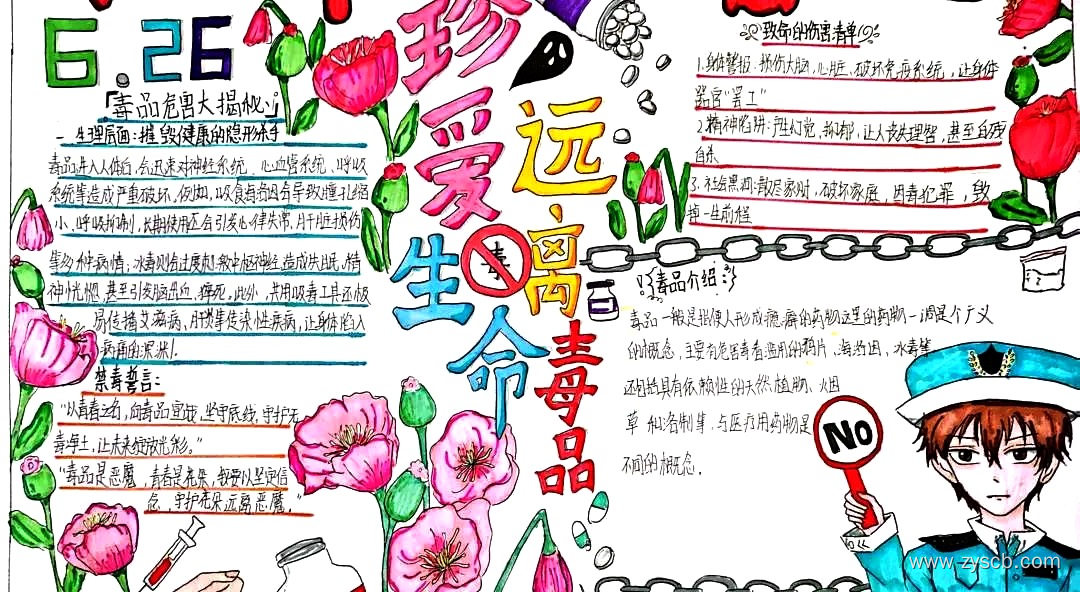 6.26
「毒品危害大揭秘」
一、生理层面：摧毁健康的隐形杀手
毒品进入人体后,会迅速对神经系统、心血管系统、呼吸
系统等造成严重破坏,例如,吸食海洛因会导致瞳孔缩
小、呼吸抑制,长期使用还会引发心律失常,肝脏损伤
等多种病情；冰毒则会过度刺激中枢神经,造成失眠,精
神恍惚,甚至引发脑出血、猝死,此外,共用吸毒工具还极
易传播艾滋病,肝炎等传染性疾病,让身体陷入
病痛的深渊.
禁毒誓言:
“以青春之名,向毒品宣战,坚守底线,守护无
毒净土,让未来绽放光彩。”
“毒品是恶魔,青春是花朵,我要以坚定信
念,守护花朵远离恶魔。”
珍爱生命
远离毒品
毒
致命的伤害清单
1.身体警报:损伤大脑,心脏、破坏免疫系统,让身体
器官“罢工”
2.精神陷阱:产生幻觉,抑郁,让人丧失理智,甚至自残
自杀
3.社会黑洞:散尽家财,破坏家庭,因毒犯罪,毁
掉一生前程
毒品介绍
毒品一般是指使人形成瘾癖的药物这里的药物一词是个广义
的概念,主要有危害毒看滥用的鸦片、海洛因、冰毒等
还包括具有依赖性的天然植物、烟
草和溶制等、与医疗用药物是
不同的概念.
NO
www.zyscb.com